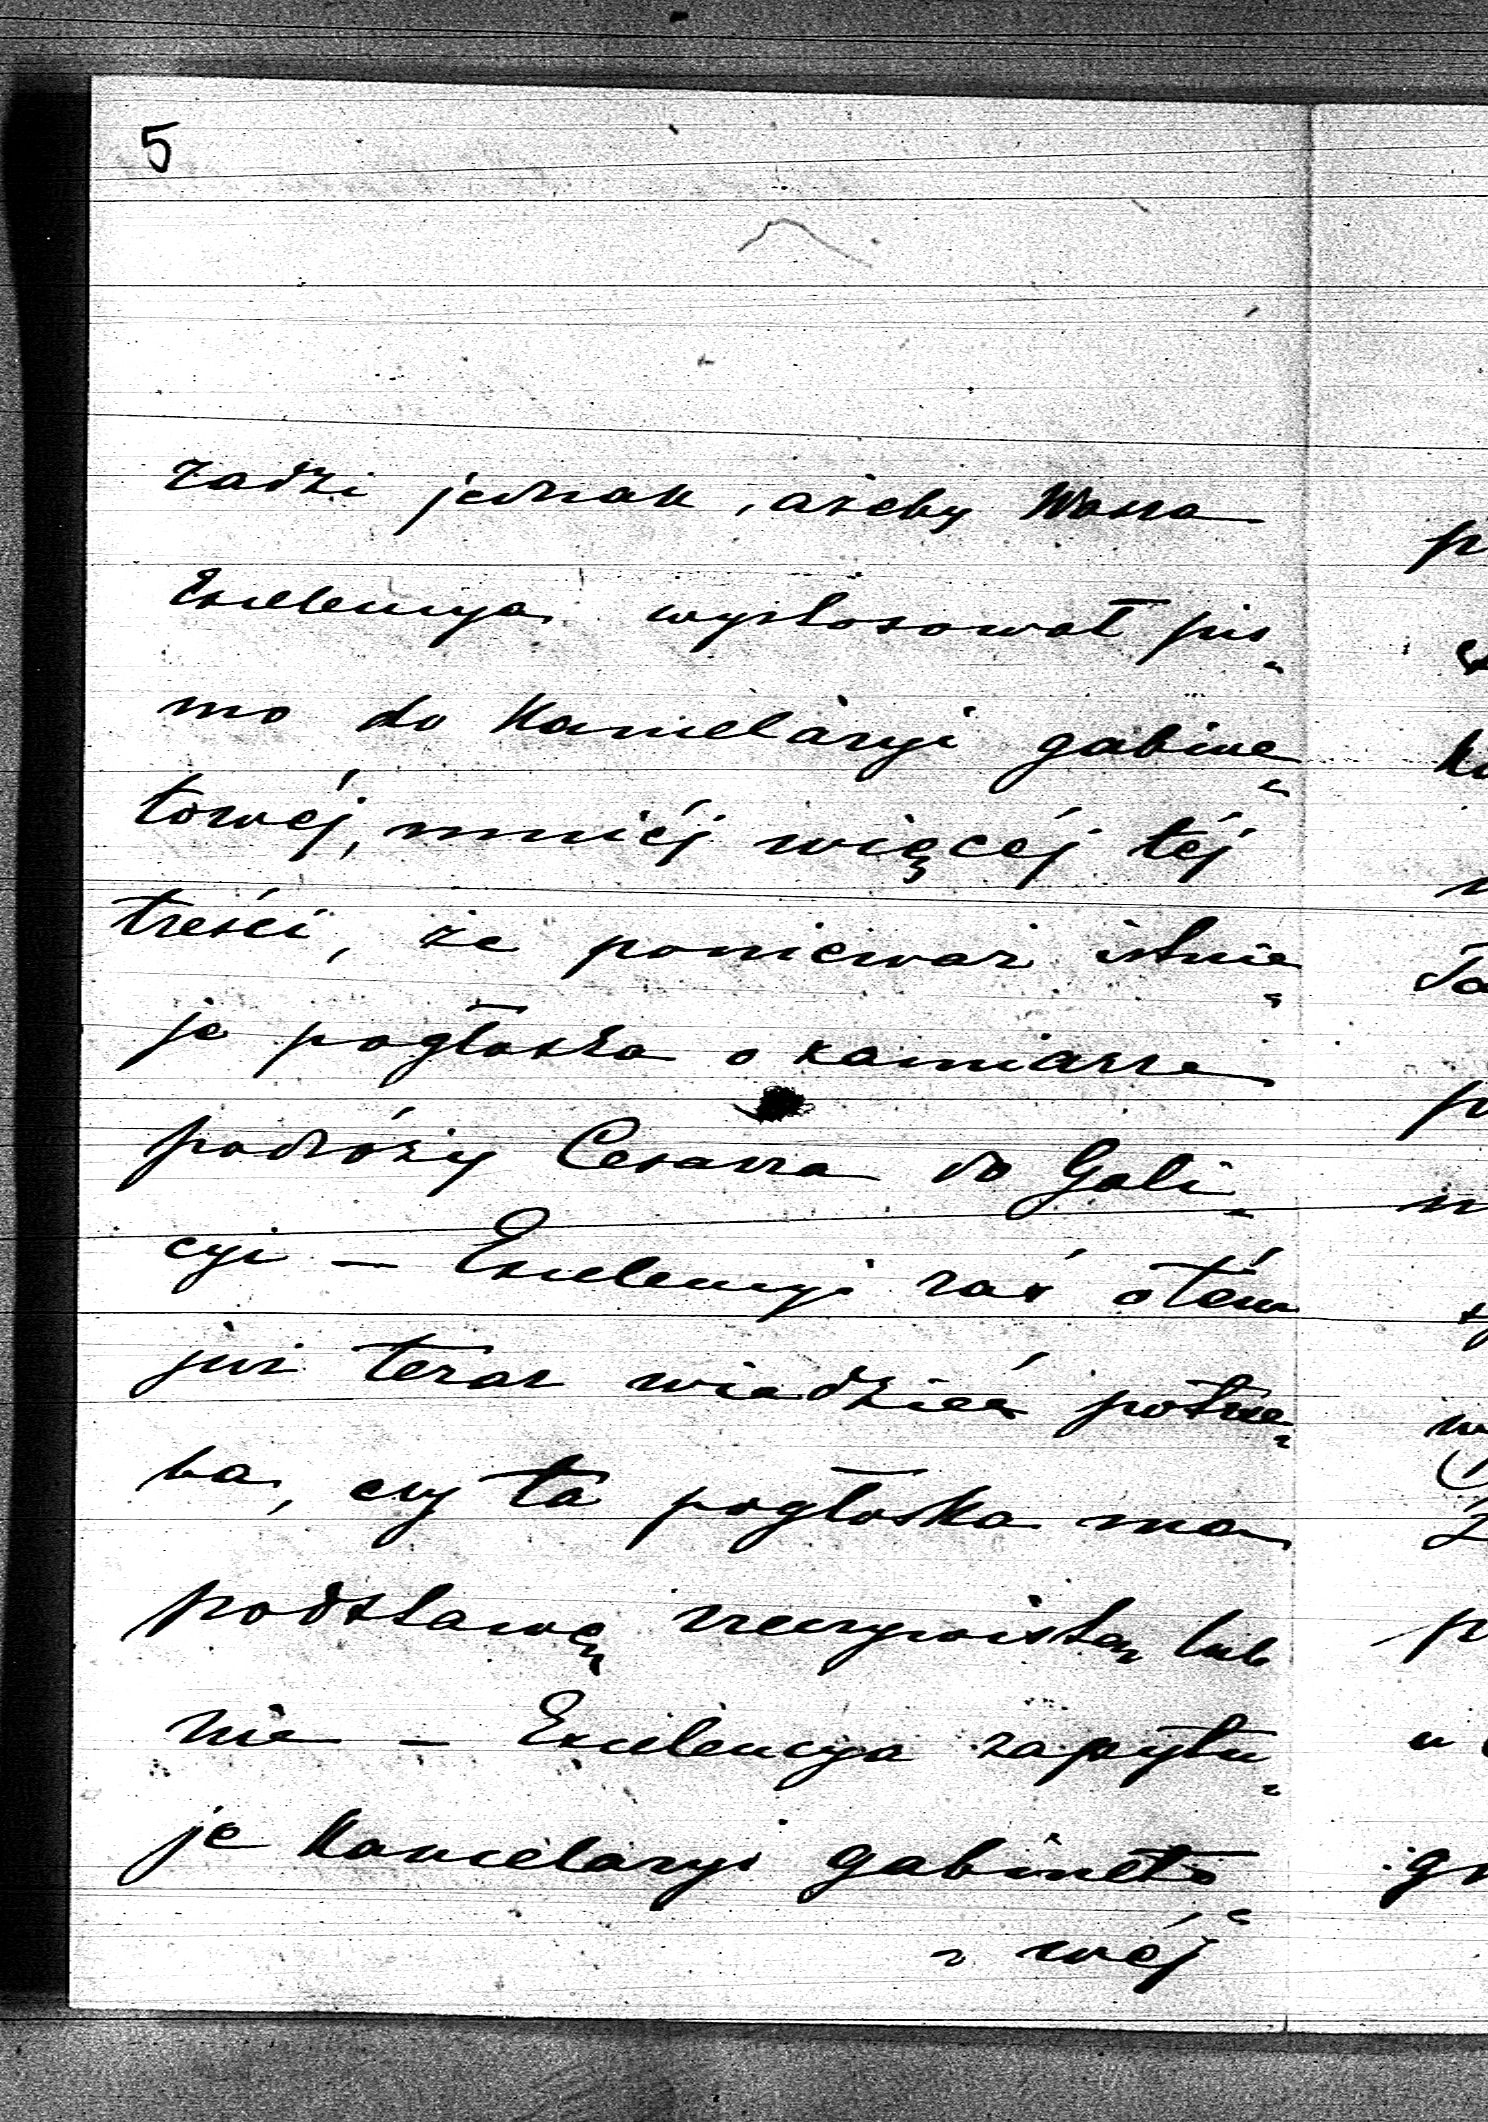 5
radzi jednak, ażeby Wasza
Excelencya wystosował pis-
mo do Kancelaryi gabine-
towéj, mniéj więcéj téj
treści, że ponieważ istnie-
je pogłoska o zamiarze
podróży Cesarza do Gali-
cyi — Excelencyi zaś o tém
już teraz wiedzieć potrze-
ba, czy ta pogłoska ma
podstawę rzeczywistą lub
nie — Excelencya zapytu-
je Kancelaryi gabineto-
-wéj